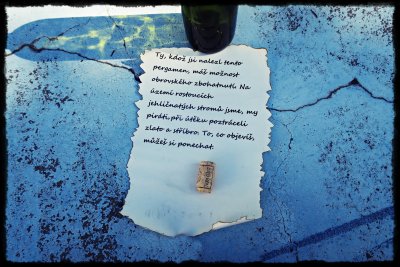 Ty, kdož jsi nalezl tento
pergamen, máš možnost
obrovského zbohatnutí. Na
území rostoucích
jehličnatých stromů jsme, my
piráti,při útěku poztráceli
zlato a stříbro. To, co objevíš,
můžeš si ponechat.